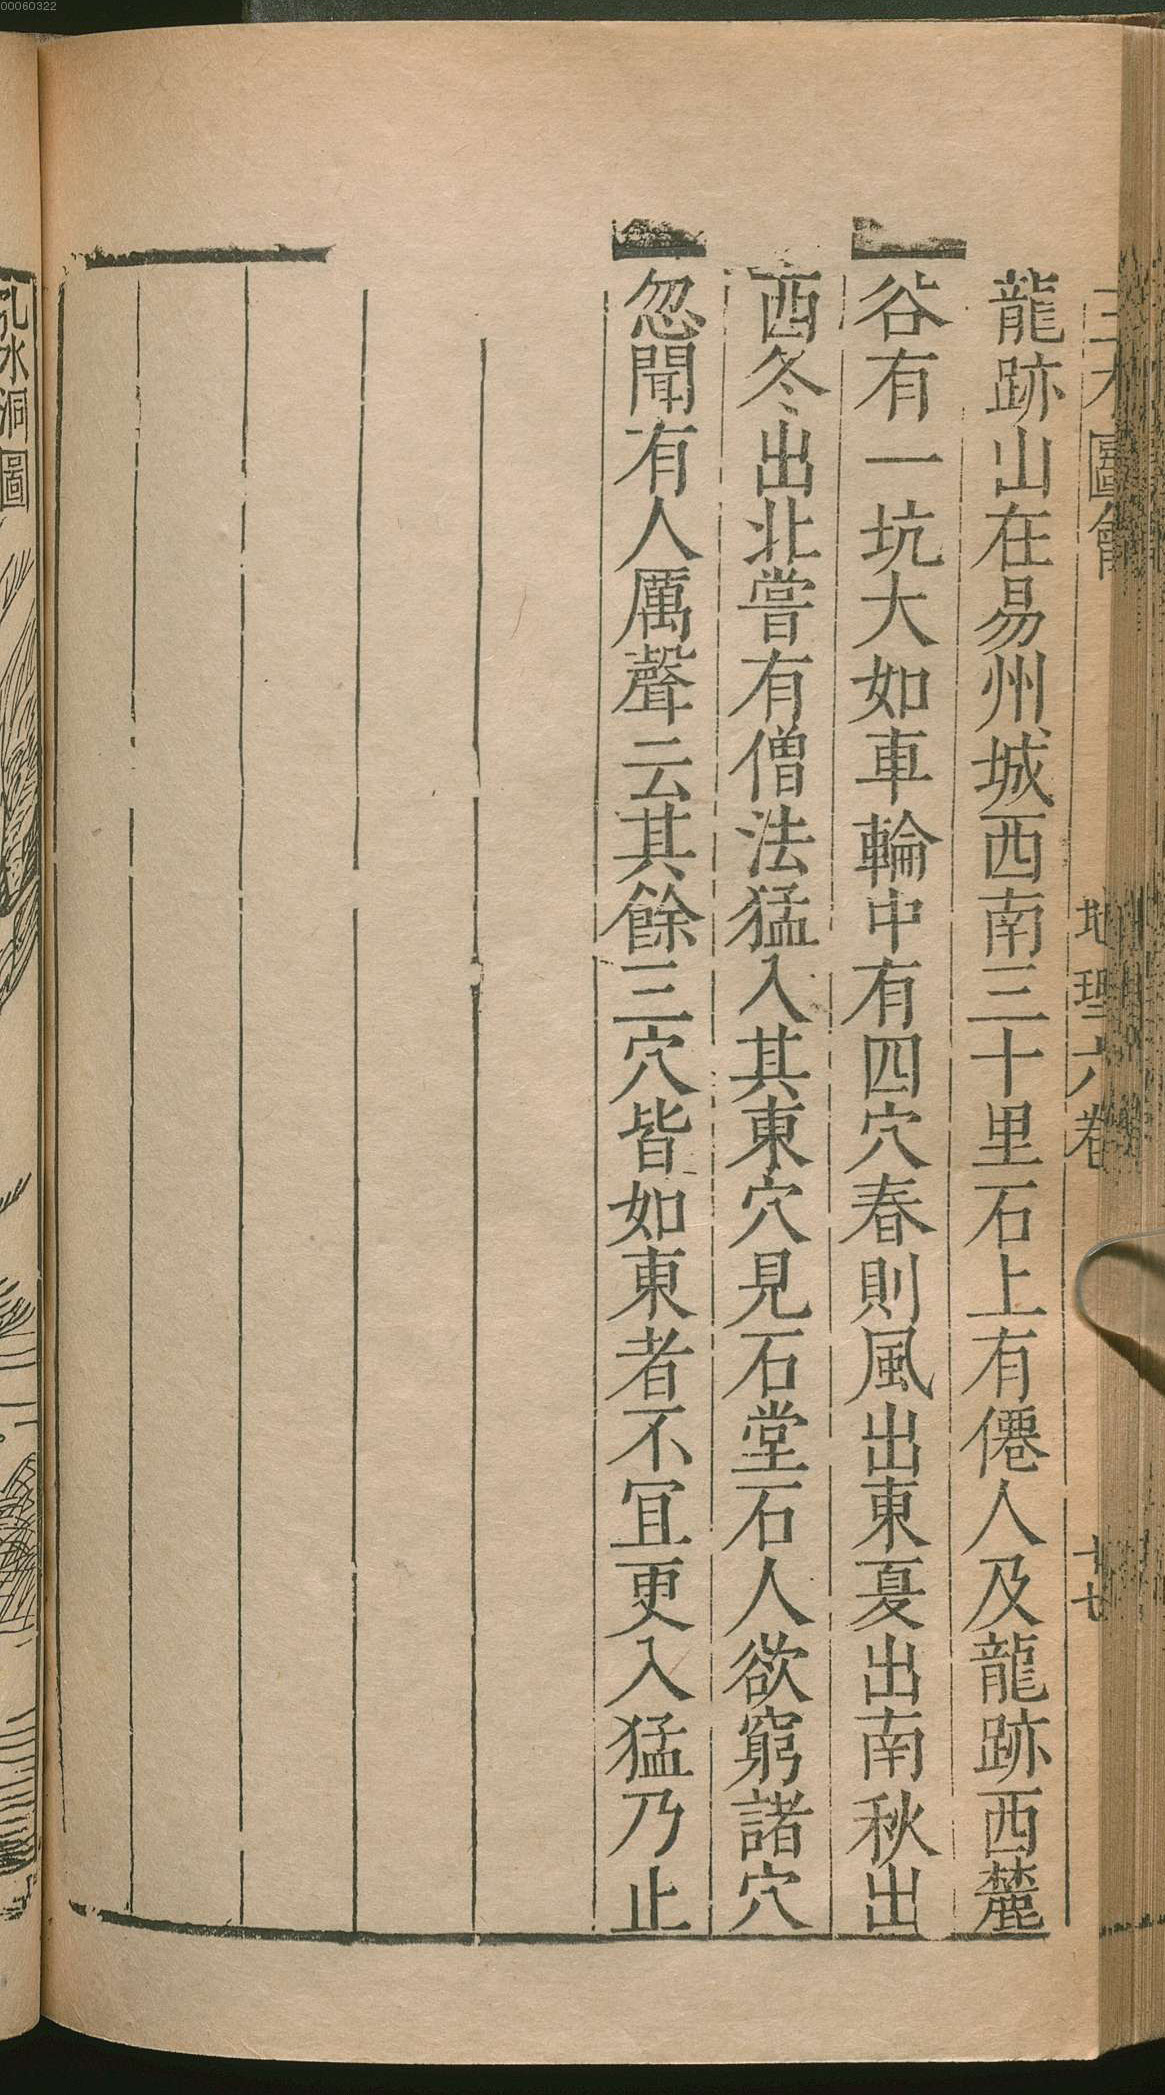 00060322
三才圖會 地理六卷 十七
龍跡山在易州城西南三十里石上有僊人及龍跡西麓
谷有一坑大如車輪中有四穴春則風出東夏出南秋出
西冬出北嘗有僧法猛入其東穴見石堂石人欲窮諸穴
忽聞有人厲聲云其餘三穴皆如東者不冝更入猛乃止
孔水洞圖